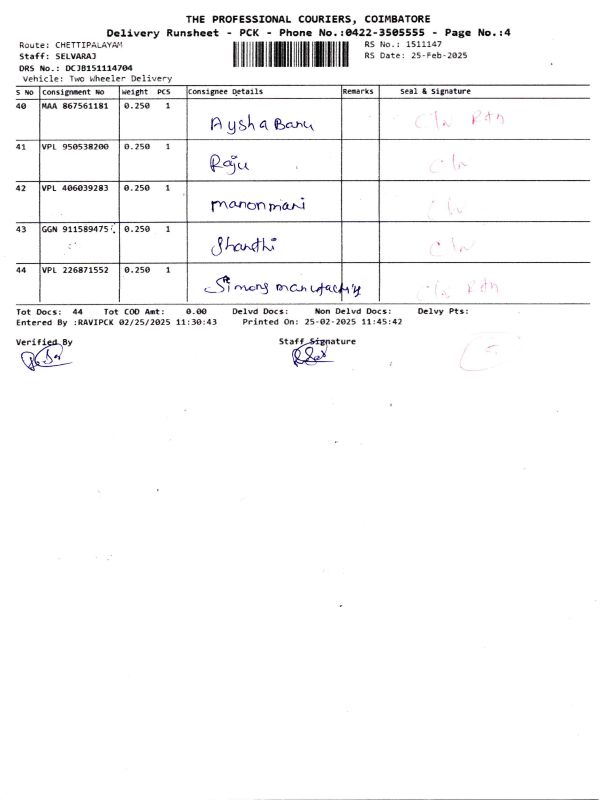 THE PROFESSIONAL COURIERS, COIMBATORE
Delivery Runsheet - PCK - Phone No.:0422-3505555 - Page No.:4
Route: CHETTIPALAYAM
RS No.: 1511147
Staff: SELVARAJ
RS Date: 25-Feb-2025
DRS No.: DCJB151114704
Vehicle: Two Wheeler Delivery
S No Consignment No Weight PCS Consignee Details Remarks Seal & Signature
40 MAA 867561181 0.250 1 Aysha Banu
41 VPL 950538200 0.250 1 Raju
42 VPL 406039283 0.250 1 manonmani
43 GGN 911589475 0.250 1 Shanthi
44 VPL 226871552 0.250 1 Simons
Tot Docs: 44 Tot COD Amt: 0.00 Delvd Docs: Non Delvd Docs: Delvy Pts:
Entered By :RAVIPCK 02/25/2025 11:30:43 Printed On: 25-02-2025 11:45:42
Verified By Staff Signature
5